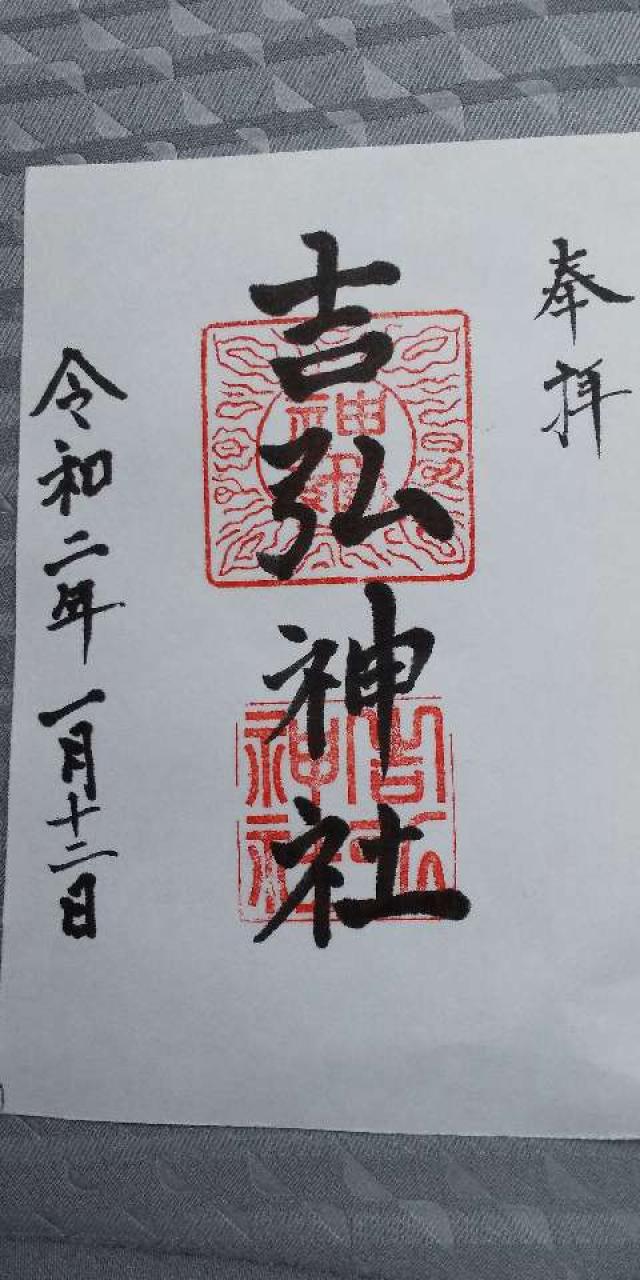 奉拝
吉弘神社
令和二年一月十二日